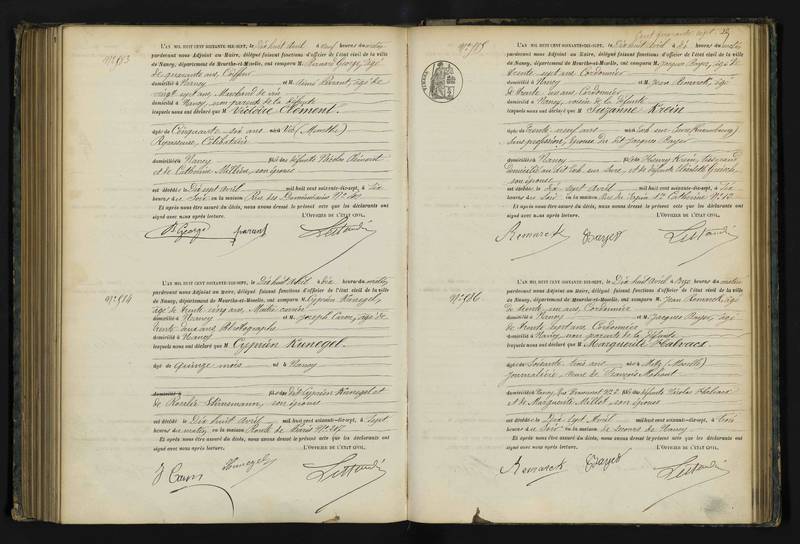 N° 583
L'AN MIL HUIT CENT SOIXANTE-DIX-SEPT, le Dix huit avril à neuf heures du matin
pardevant nous Adjoint au Maire, délégué faisant fonctions d'officier de l'état civil de la ville
de Nancy, département de Meurthe-et-Moselle, ont comparu M. Bernard George, âgé
de quarante ans, Coiffeur
domicilié à Nancy et M. Aimé Parant, âgé de
vingt sept ans, Marchand de vin
domicilié à Nancy, non parents de la défunte
lesquels nous ont déclaré que M. Victoire Clément.
âgée de Cinquante six ans née à Vic (Meurthe)
Repasseuse, Célibataire
domiciliée à Nancy fille des défunts Nicolas Clément
et de Catherine son épouse
est décédée le Dix sept avril mil huit cent soixante-dix-sept, à Six
heures du Soir en la maison Rue des Dominicains N°
Et après nous être assuré du décès, nous avons dressé le présent acte que les déclarants ont
signé avec nous après lecture. L'OFFICIER DE L'ÉTAT CIVIL,
B George parant
N° 584
L'AN MIL HUIT CENT SOIXANTE-DIX-SEPT, le Dix huit Avril à Dix heures du matin
pardevant nous Adjoint au Maire, délégué faisant fonctions d'officier de l'état civil de la ville
de Nancy, département de Meurthe-et-Moselle, ont comparu M. Cyprien Hunegel,
âgé de trente cinq ans,
domicilié à Nancy et M. Joseph âgé de
trente deux ans Photographe
domicilié à Nancy
lesquels nous ont déclaré que M. Cyprien Hunegel.
âgé de quinze mois né à Nancy
fils de dit Cyprien Hunegel et
de Rosalie son épouse
est décédé le Dix huit avril mil huit cent soixante-dix-sept, à Sept
heures du matin en la maison Route de N°
Et après nous être assuré du décès, nous avons dressé le présent acte que les déclarants ont
signé avec nous après lecture. L'OFFICIER DE L'ÉTAT CIVIL,
Hunegel
Cent quarante sept
N° 585
L'AN MIL HUIT CENT SOIXANTE-DIX-SEPT, le Dix huit avril à Dix heures du matin
pardevant nous Adjoint au Maire, délégué faisant fonctions d'officier de l'état civil de la ville
de Nancy, département de Meurthe-et-Moselle, ont comparu M. Jacques Bayer, âgé de
trente sept ans Cordonnier
domicilié à Nancy et M. Jean Remarck, âgé
de trente un ans, Cordonnier
domicilié à Nancy, voisin de la défunte
lesquels nous ont déclaré que M. Suzanne Krein
âgée de trente neuf ans née à Esch sur Sure (Luxembourg)
Sans profession, épouse du dit Jacques Bayer
domiciliée à Nancy fille de Henry Krein,
domicilié au dit Esch sur Sure, et de défunte Elisabeth
son épouse
est décédée le Dix sept Avril mil huit cent soixante-dix-sept, à Dix
heures du Soir en la maison Rue du Ste Catherine N° 12
Et après nous être assuré du décès, nous avons dressé le présent acte que les déclarants ont
signé avec nous après lecture. L'OFFICIER DE L'ÉTAT CIVIL,
Remarck Bayer
N° 586
L'AN MIL HUIT CENT SOIXANTE-DIX-SEPT, le Dix huit Avril à onze heures du matin
pardevant nous Adjoint au Maire, délégué faisant fonctions d'officier de l'état civil de la ville
de Nancy, département de Meurthe-et-Moselle, ont comparu M. Jean Remarck, âgé
de trente un ans, Cordonnier
domicilié à Nancy et M. Jacques Bayer, âgé
de trente sept ans, Cordonnier
domicilié à Nancy, non parents de la défunte
lesquels nous ont déclaré que M. Marguerite
âgée de soixante trois ans née à Metz (Moselle)
Journalière, veuve de François
domiciliée à Nancy, fille des défunts Nicolas
et de Marguerite Millot, son épouse
est décédée le Dix Sept Avril mil huit cent soixante-dix-sept, à trois
heures du Soir en la maison de secours de Nancy
Et après nous être assuré du décès, nous avons dressé le présent acte que les déclarants ont
signé avec nous après lecture. L'OFFICIER DE L'ÉTAT CIVIL,
Remarck Bayer